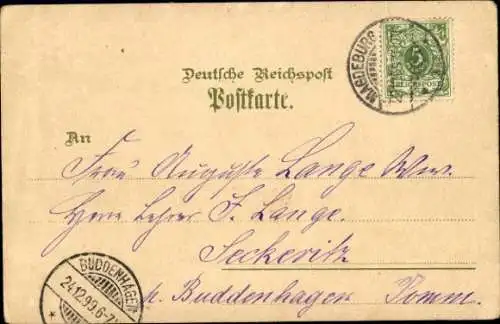 MAGDEBURG
5
REICHSPOST
Deutsche Reichspost
Postkarte.
An
Frau Auguste Lange Wwe.
Herrn Lehrer F. Lange.
Seckeritz
p. Buddenhagen Pomm.
BUDDENHAGEN
24.12.99.6-7